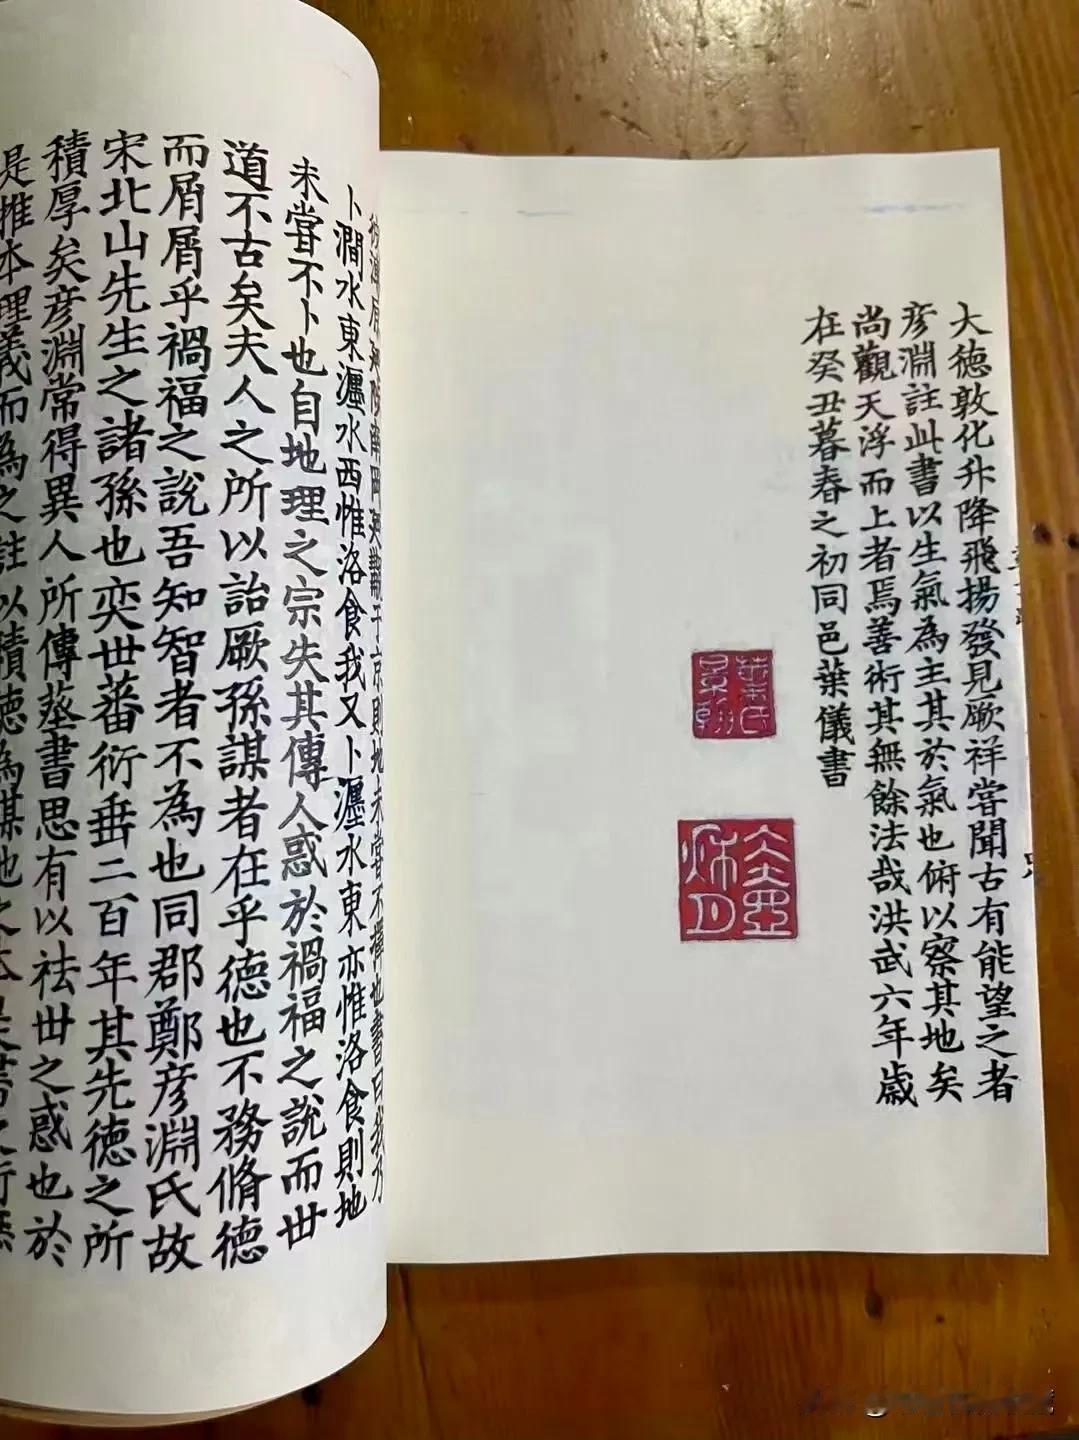 大德敦化升降飛揚發見厥祥嘗聞古有能望之者
彦淵註此書以生氣為主其於氣也俯以察其地矣
尚觀天浮而上者焉善術其無餘法哉洪武六年歲
在癸丑暮春之初同邑葉儀書
葉氏景翰
南岡于京則地未嘗不擇也書曰我乃
卜澗水東瀍水西惟洛食我又卜瀍水東亦惟洛食則地
未嘗不卜也自地理之宗失其傳人惑於禍福之說而世
道不古矣夫人之所以詒厥孫謀者在乎德也不務脩德
而屑屑乎禍福之說吾知智者不為也同郡鄭彦淵氏故
宋北山先生之諸孫也奕世蕃衍垂二百年其先德之所
積厚矣彦淵常得異人所傳葬書思有以祛世之惑也於
是推本理義而為之註以積德為謀地之本是書之行無